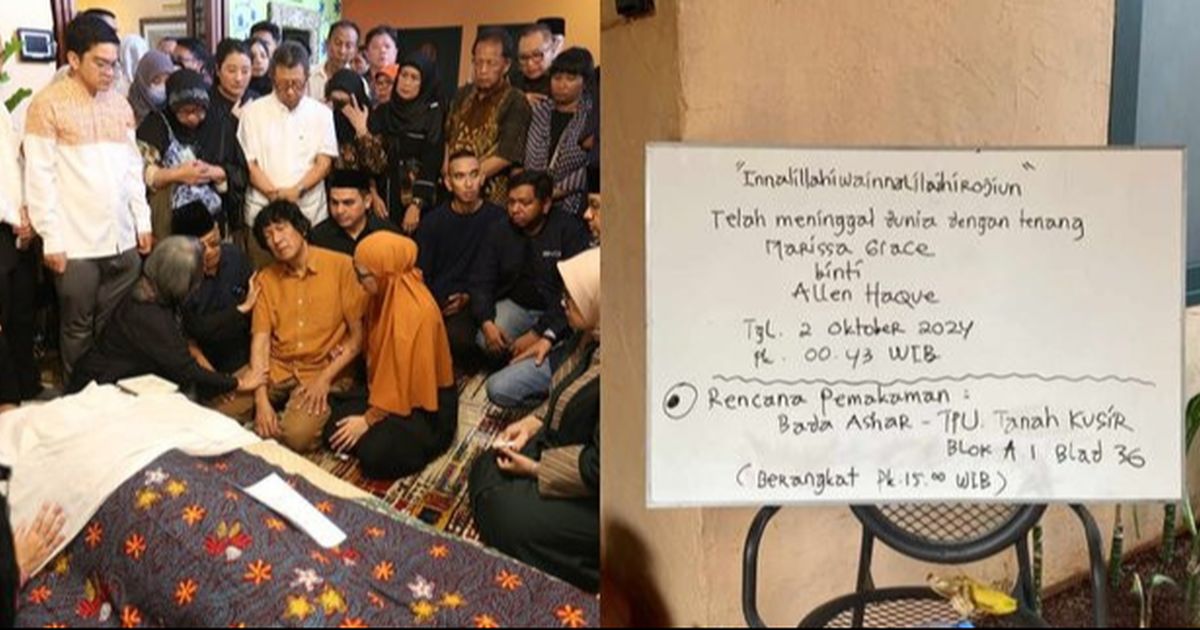 "Innalillahiwainnalilaihirojiun"
Telah meninggal dunia dengan tenang
Marissa Grace
binti
Allen Haque
Tgl. 2 Oktober 2024
Pk. 00.43 WIB
Rencana Pemakaman :
Bada Ashar - TPU. Tanah Kusir
Blok A 1 Blad 36
(Berangkat Pk.15.00 WIB)